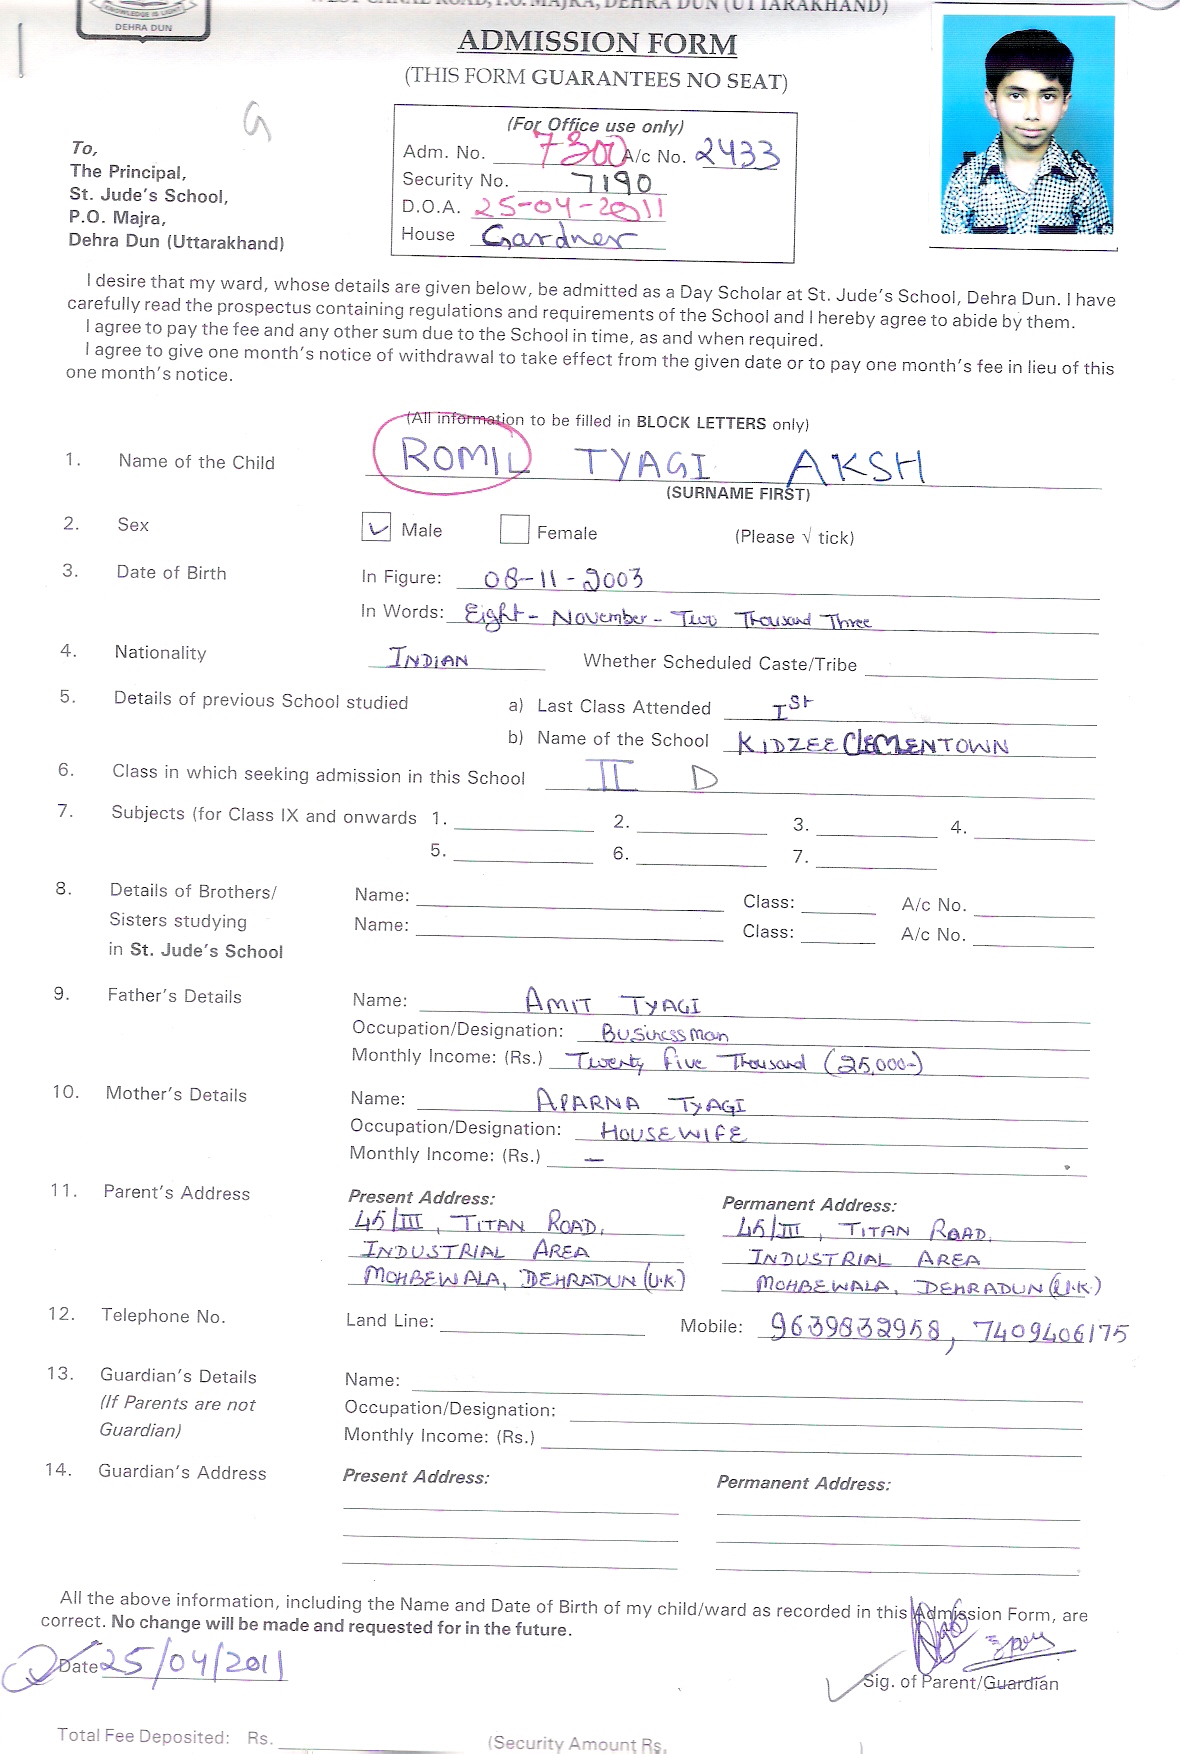 KNOWLEDGE IS LIGHT
DEHRA DUN
WEST CANAL ROAD, P.O. MAJRA, DEHRA DUN (UTTARAKHAND)
ADMISSION FORM
(THIS FORM GUARANTEES NO SEAT)
G
(For Office use only)
Adm. No. 7300 A/c No. 2433
Security No. 7190
D.O.A. 25-04-2011
House Gardner
To,
The Principal,
St. Jude's School,
P.O. Majra,
Dehra Dun (Uttarakhand)
I desire that my ward, whose details are given below, be admitted as a Day Scholar at St. Jude's School, Dehra Dun. I have
carefully read the prospectus containing regulations and requirements of the School and I hereby agree to abide by them.
I agree to pay the fee and any other sum due to the School in time, as and when required.
I agree to give one month's notice of withdrawal to take effect from the given date or to pay one month's fee in lieu of this
one month's notice.
(All information to be filled in BLOCK LETTERS only)
1. Name of the Child ROMIL TYAGI AKSH
(SURNAME FIRST)
2. Sex ✓ Male Female (Please √ tick)
3. Date of Birth In Figure: 08-11-2003
In Words: Eight - November - Two Thousand Three
4. Nationality INDIAN Whether Scheduled Caste/Tribe
5. Details of previous School studied a) Last Class Attended Ist
b) Name of the School KIDZEE CLEMENTOWN
6. Class in which seeking admission in this School II D
7. Subjects (for Class IX and onwards 1. 2. 3. 4.
5. 6. 7.
8. Details of Brothers/ Name: Class: A/c No.
Sisters studying Name: Class: A/c No.
in St. Jude's School
9. Father's Details Name: AMIT TYAGI
Occupation/Designation: Businessman
Monthly Income: (Rs.) Twenty five Thousand (25,000-)
10. Mother's Details Name: APARNA TYAGI
Occupation/Designation: HOUSEWIFE
Monthly Income: (Rs.) —
11. Parent's Address Present Address: Permanent Address:
45/III, TITAN ROAD, 45/III, TITAN ROAD,
INDUSTRIAL AREA INDUSTRIAL AREA
MOHBEWALA, DEHRADUN (U.K) MOHBEWALA, DEHRADUN (U.K.)
12. Telephone No. Land Line: Mobile: 9639832958, 7409406175
13. Guardian's Details Name:
(If Parents are not Occupation/Designation:
Guardian) Monthly Income: (Rs.)
14. Guardian's Address Present Address: Permanent Address:
All the above information, including the Name and Date of Birth of my child/ward as recorded in this Admission Form, are
correct. No change will be made and requested for in the future.
Date 25/04/2011
Sig. of Parent/Guardian
Total Fee Deposited: Rs. (Security Amount Rs. )